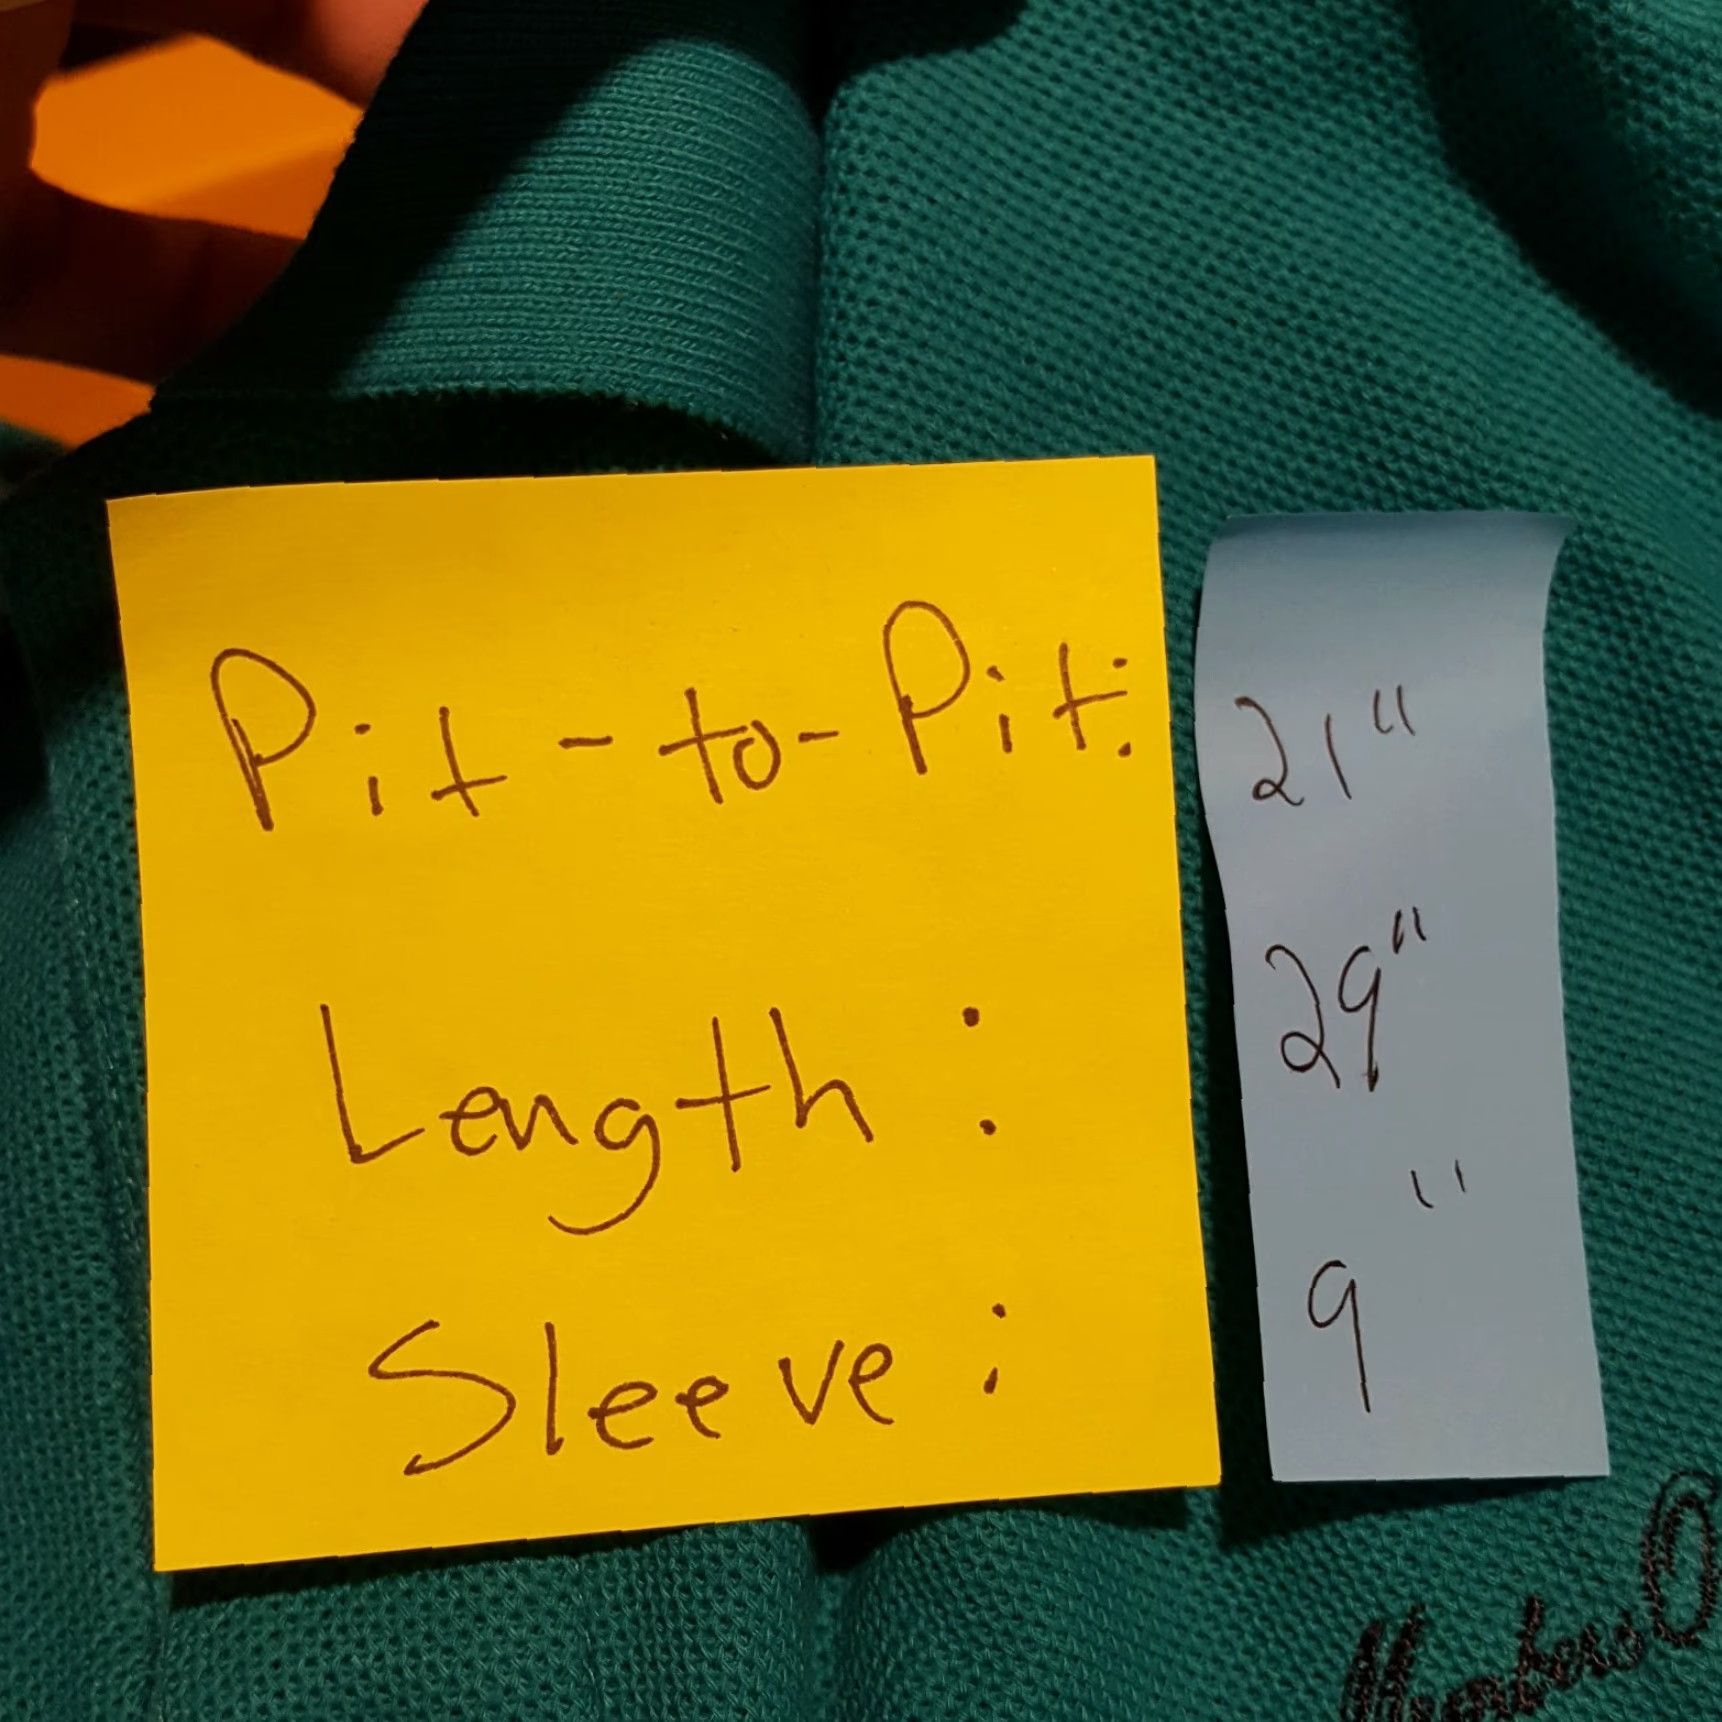 Pit-to-Pit: 21"
Length: 29"
Sleeve: 9"